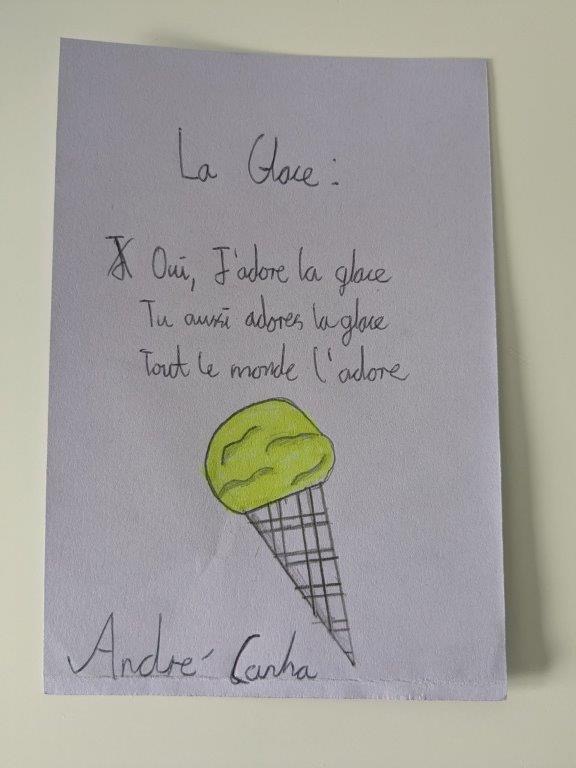 La Glace :
Oui, J'adore la glace
Tu aussi adores la glace
Tout le monde l'adore
André Canha